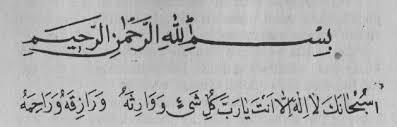 بِسْمِ اللهِ الرَّحْمٰنِ الرَّحِيْمِ
اسُبْحَانَكَ لَا اِلٰهَ اِلَّا اَنْتَ يَارَبَّ كُلِّ شَیْءٍ وَوَارِثَهُ وَرَازِقَهُ وَرَاحِمَهُ